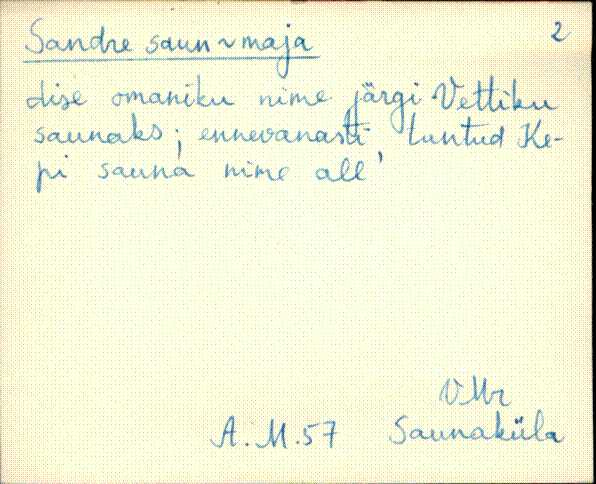 Sandre saun ~ maja 2
dise omaniku nime järgi Vettiku
saunaks; ennevanasti tuntud Ke-
pi sauna nime all'
VMr
A.M.57 Saunaküla